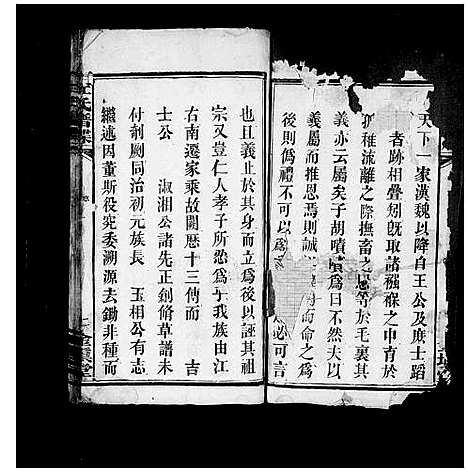 天下一家漢魏以降自王公及庶士蹈
者跡相疊矧旣取諸襁褓之中育於
孤稚流離之際撫畜之恩等於毛裏其
義亦云屬矣子胡嘖嘖爲曰不然夫以
義屬而推恩焉則誠 而命之爲
後則僞禮不 必可言
也且義止於其身而立爲後以誣其祖
宗又豈仁人孝子所忍爲乎我族由江
右南遷家乘故闕歷十三傳而 吉
士公 淑湘公諸先正創脩草譜未
付剞劂同治初元族長 玉相公有志
繼述因董斯役究委溯源去鋤非種而
氏譜
堂